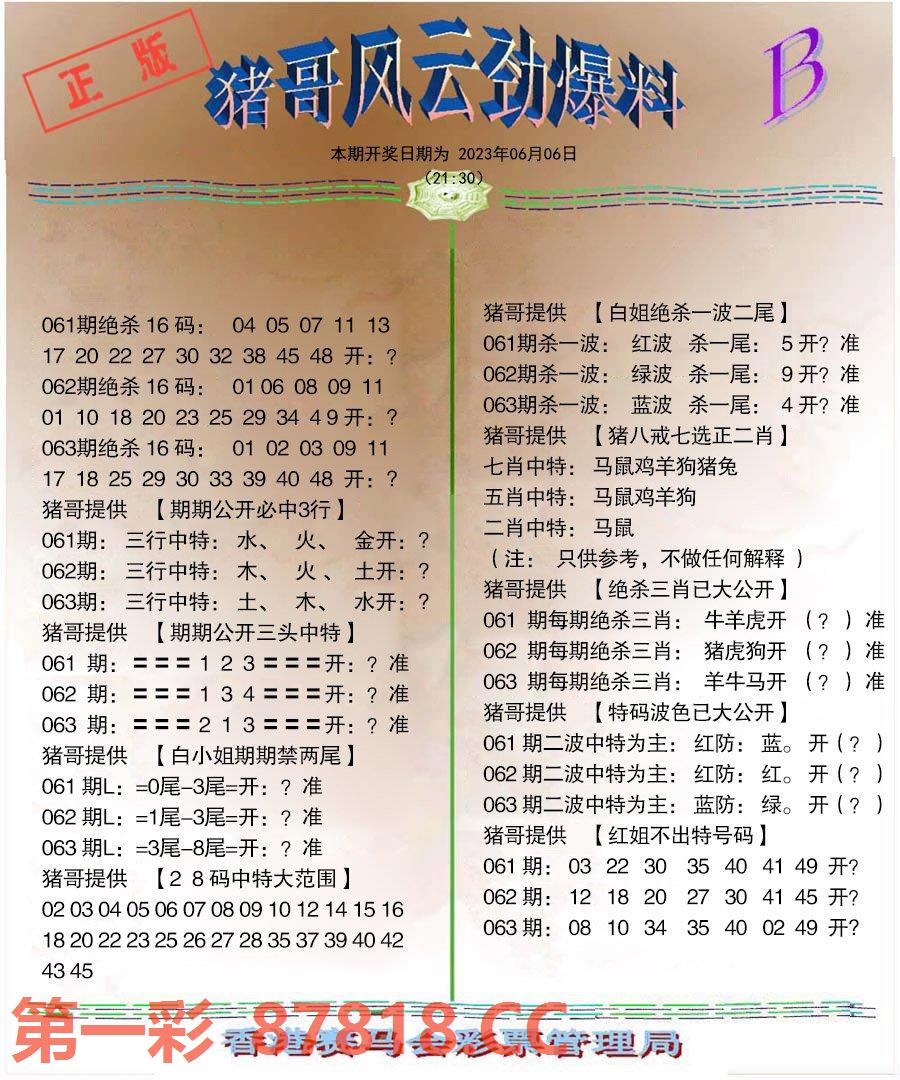 正版
猪哥风云劲爆料
B
本期开奖日期为 2023年06月06日
(21:30)
061期绝杀 16 码： 04 05 07 11 13
17 20 22 27 30 32 38 45 48 开：？
062期绝杀 16 码： 01 06 08 09 11
01 10 18 20 23 25 29 34 4 9 开：？
063期绝杀 16 码： 01 02 03 09 11
17 18 25 29 30 33 39 40 48 开：？
猪哥提供 【期期公开必中3行】
061期：三行中特：水、 火、 金开：？
062期：三行中特：木、 火、 土开：？
063期：三行中特：土、 木、 水开：？
猪哥提供 【期期公开三头中特】
061 期：＝＝＝1 2 3＝＝＝开：？准
062 期：＝＝＝1 3 4＝＝＝开：？准
063 期：＝＝＝2 1 3＝＝＝开：？准
猪哥提供 【白小姐期期禁两尾】
061 期L：=0尾-3尾=开：？准
062 期L：=1尾-3尾=开：？准
063 期L：=3尾-8尾=开：？准
猪哥提供 【2 8码中特大范围】
02 03 04 05 06 07 08 09 10 12 14 15 16
18 20 22 23 25 26 27 28 35 37 39 40 42
43 45
猪哥提供 【白姐绝杀一波二尾】
061期杀一波： 红波 杀一尾： 5 开？准
062期杀一波： 绿波 杀一尾： 9 开？准
063期杀一波： 蓝波 杀一尾： 4 开？准
猪哥提供 【猪八戒七选正二肖】
七肖中特： 马鼠鸡羊狗猪兔
五肖中特： 马鼠鸡羊狗
二肖中特： 马鼠
（注： 只供参考，不做任何解释 ）
猪哥提供 【绝杀三肖已大公开】
061 期每期绝杀三肖： 牛羊虎开 （？ ）准
062 期每期绝杀三肖： 猪虎狗开 （？ ）准
063 期每期绝杀三肖： 羊牛马开 （？ ）准
猪哥提供 【特码波色已大公开】
061 期二波中特为主：红防：蓝。开（？ ）
062 期二波中特为主：红防：红。开（？ ）
063 期二波中特为主：蓝防：绿。开（？ ）
猪哥提供 【红姐不出特号码】
061 期： 03 22 30 35 40 41 49 开？
062 期： 12 18 20 27 30 41 45 开？
063 期： 08 10 34 35 40 02 49 开？
第一彩 87818.CC
香港赛马会彩票管理局